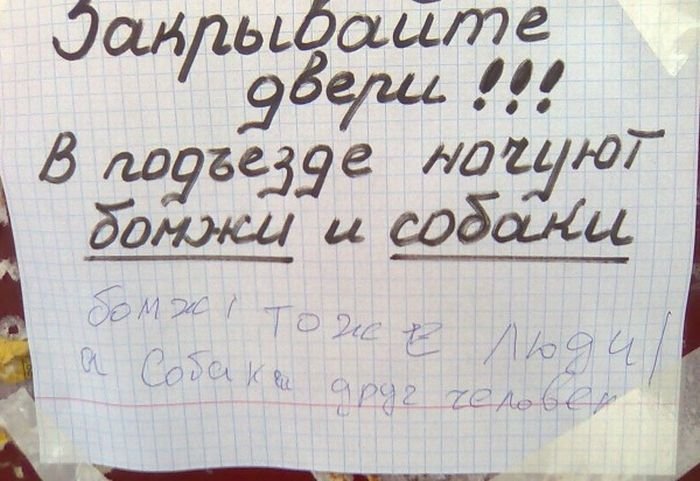 Закрывайте
двери!!!
В подъезде ночуют
бомжи и собаки
бомжі тоже люди!
а собаки друг человек